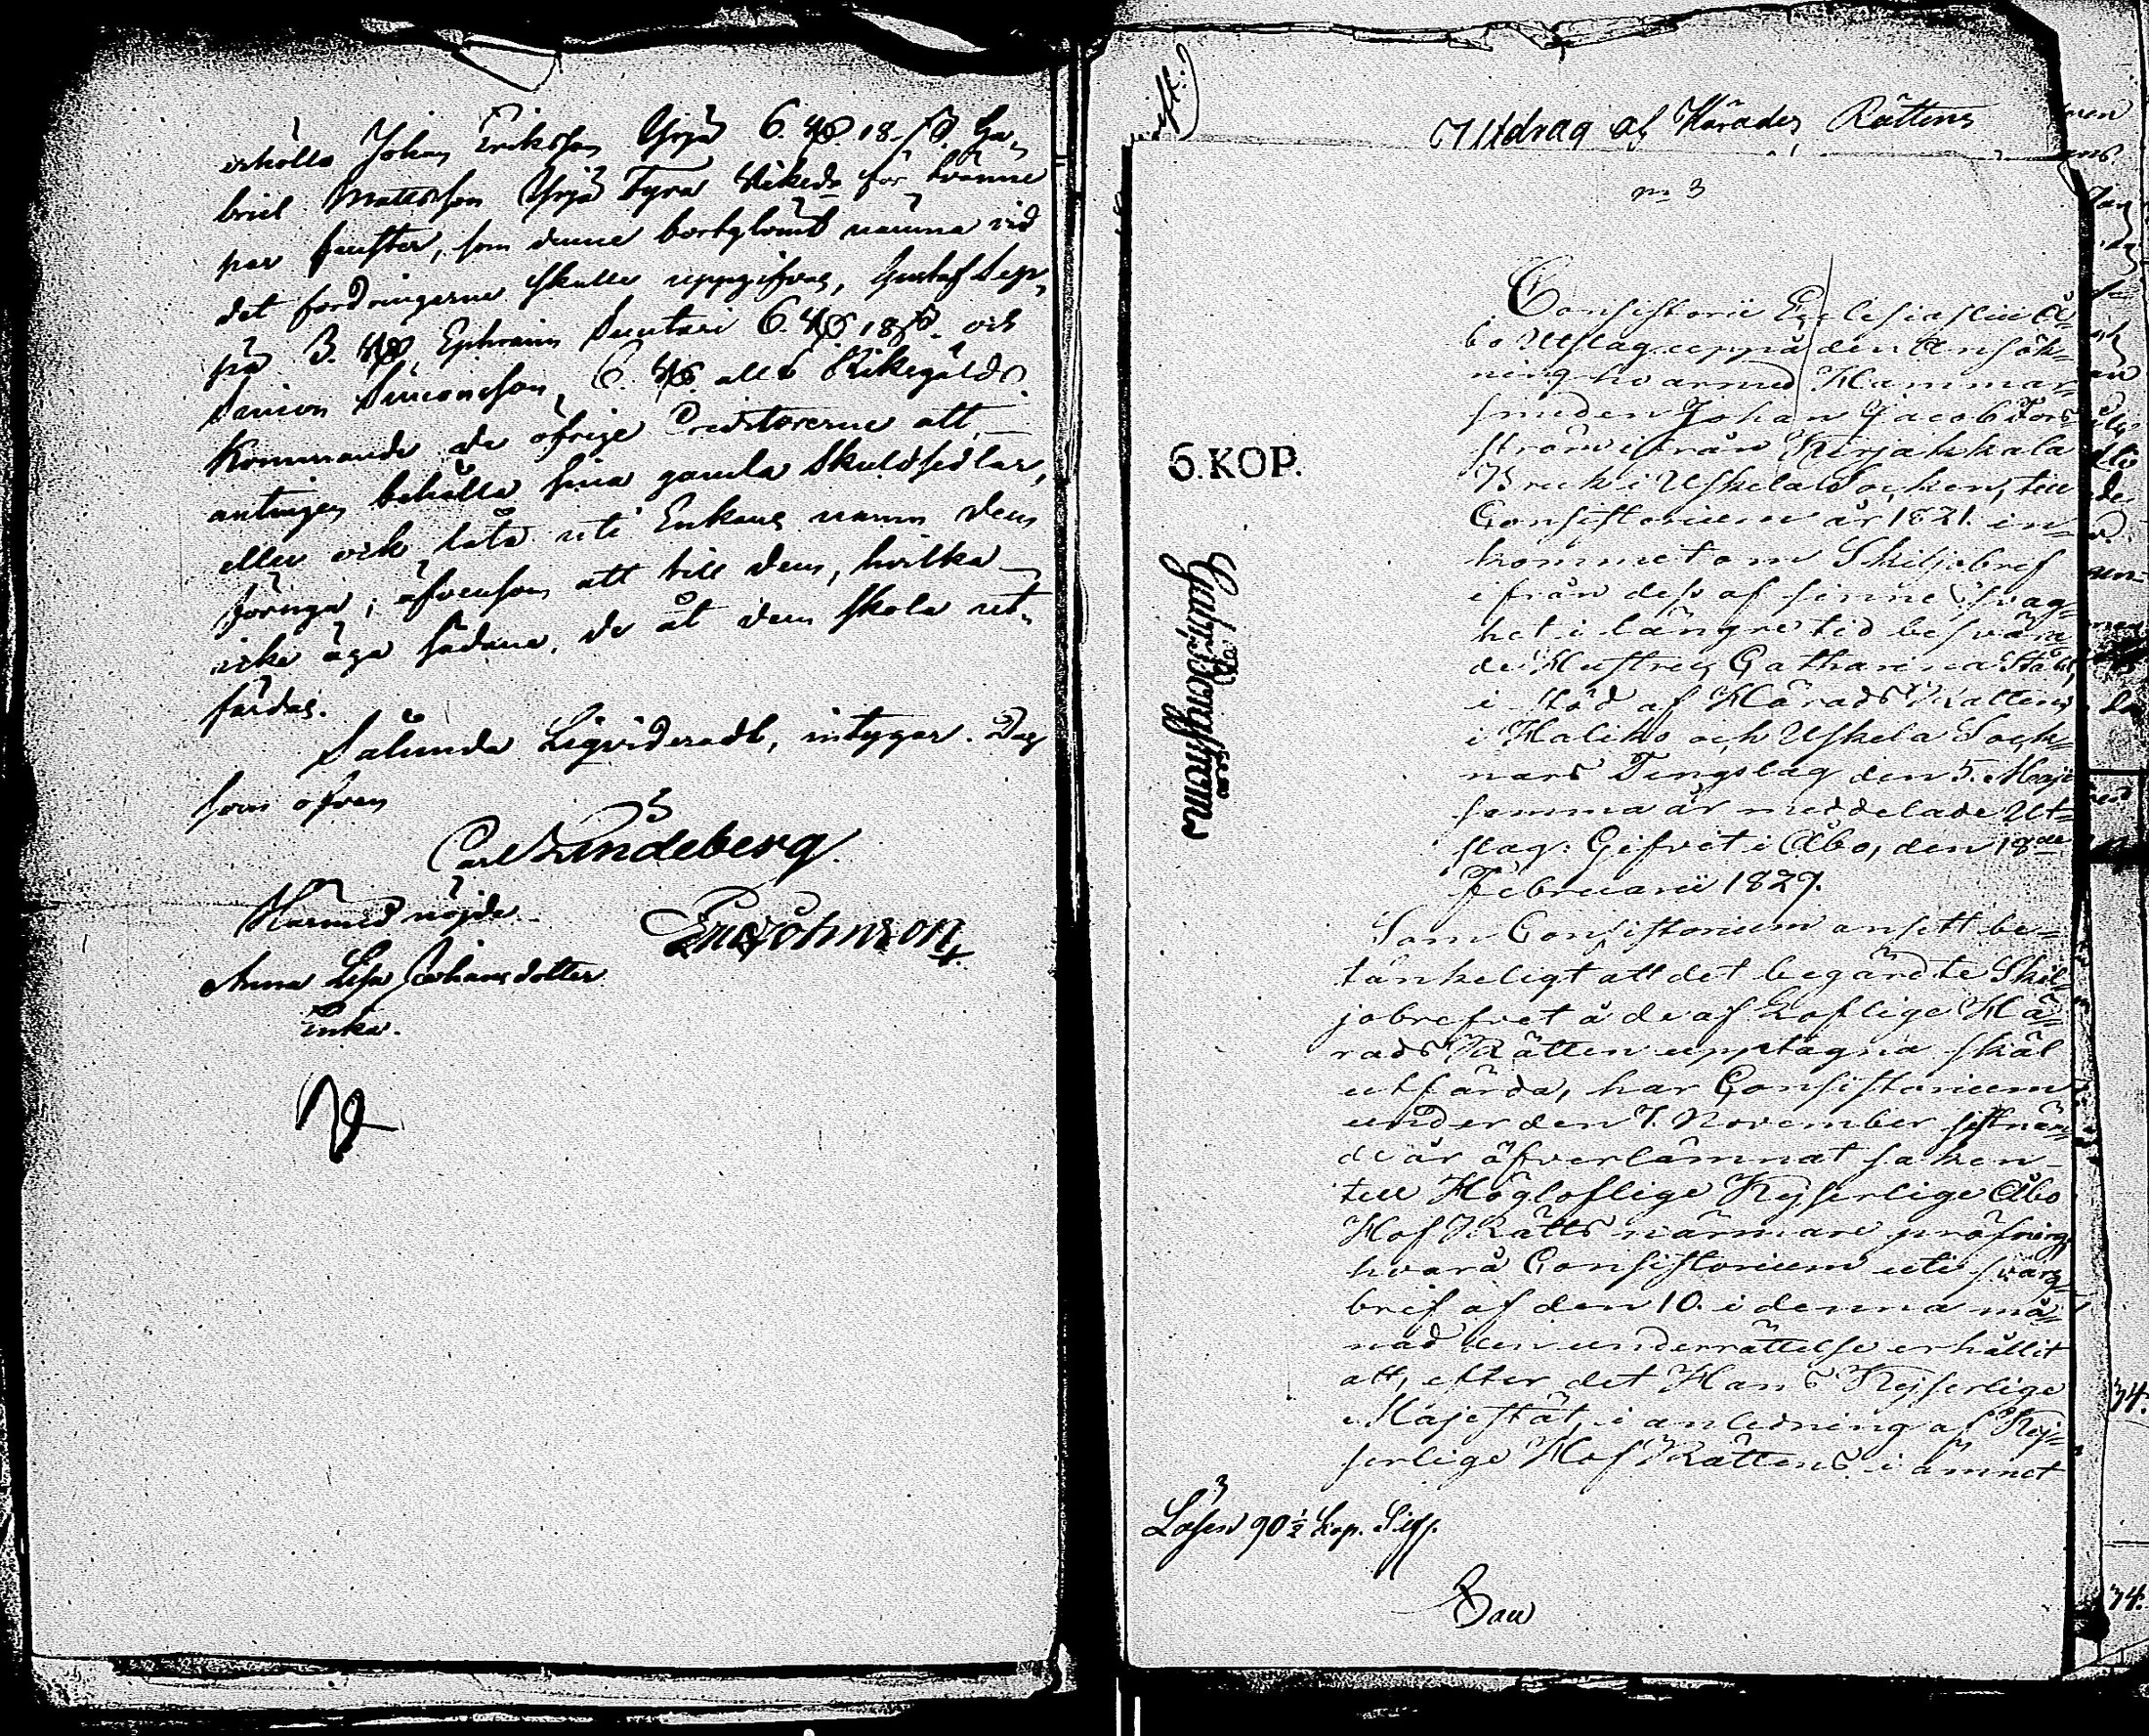 erhölls Johan Eriksson Yrjä 6. Rd. 18 s. Ga-
briel Mattsson Yrjä Fyra Riksd. för tvänne
par fenster, som denne bortglömt nämna vid
det fordringarne skulle uppgifvas, Gustaf Sep-
pä 3. Rd. Ephraim Suutari 6. Rd. 18 s. och
Simon Simonsson 6. Rd. allt Riksgälds.
Kommande de öfrige Creditorerne att
antingen behålla sina gamla Skuldsedlar,
eller ock låta uti Enkans namn dem
förnya; äfvensom att till dem, hvilka
icke äga sådane, de åt dem skola ut-
färdas.
Sålunda Liqvideradt, intygar. Dag
som ofvan
Carl Lindeberg
Härmed nöjde
Eric Johnson
Anna Lisa Johansdotter
Enka.
Utdrag af Härads Rättens
n 3
Consistorii Ecclesiastici Å-
bo Utslag uppå den Ansök-
ning hvarmed Hammar-
smeden Johan Jacob Fors-
ström ifrån Kirjakkala
Bruk i Uskela Socken, till
Consistorium år 1821. in-
kommit om Skiljobref
ifrån dess af sinne svag-
het i längre tid besvära-
de Hustru, Catharina Ståhl,
i stöd af Härads Rättens
i Haliko och Uskela Sock-
nars Tingslag den 5. Maji
samma år meddelade Ut-
slag: Gifvit i Åbo, den 18de
Februarii 1829.
6. KOP.
Som Consistorium ansett be-
tänkeligt att det begärdte Skil-
jobrefvet å de af Loflige Hä-
rads Rätten upptagna skäl
utfärda, har Consistorium
under den 7. November sistnäm-
de år öfverlämnat saken
till Högloflige Kejserlige Åbo
Hof Rätts närmare pröfning
hvarå Consistorium uti svars
bref af den 10. i denna må-
nad den underrättelse erhållit
att, efter det Hans Kejserlige
Majestät, i anledning af Kej-
serlige Hof Rättens i ämnet
Lösen 90 ½ Kop. Silf.